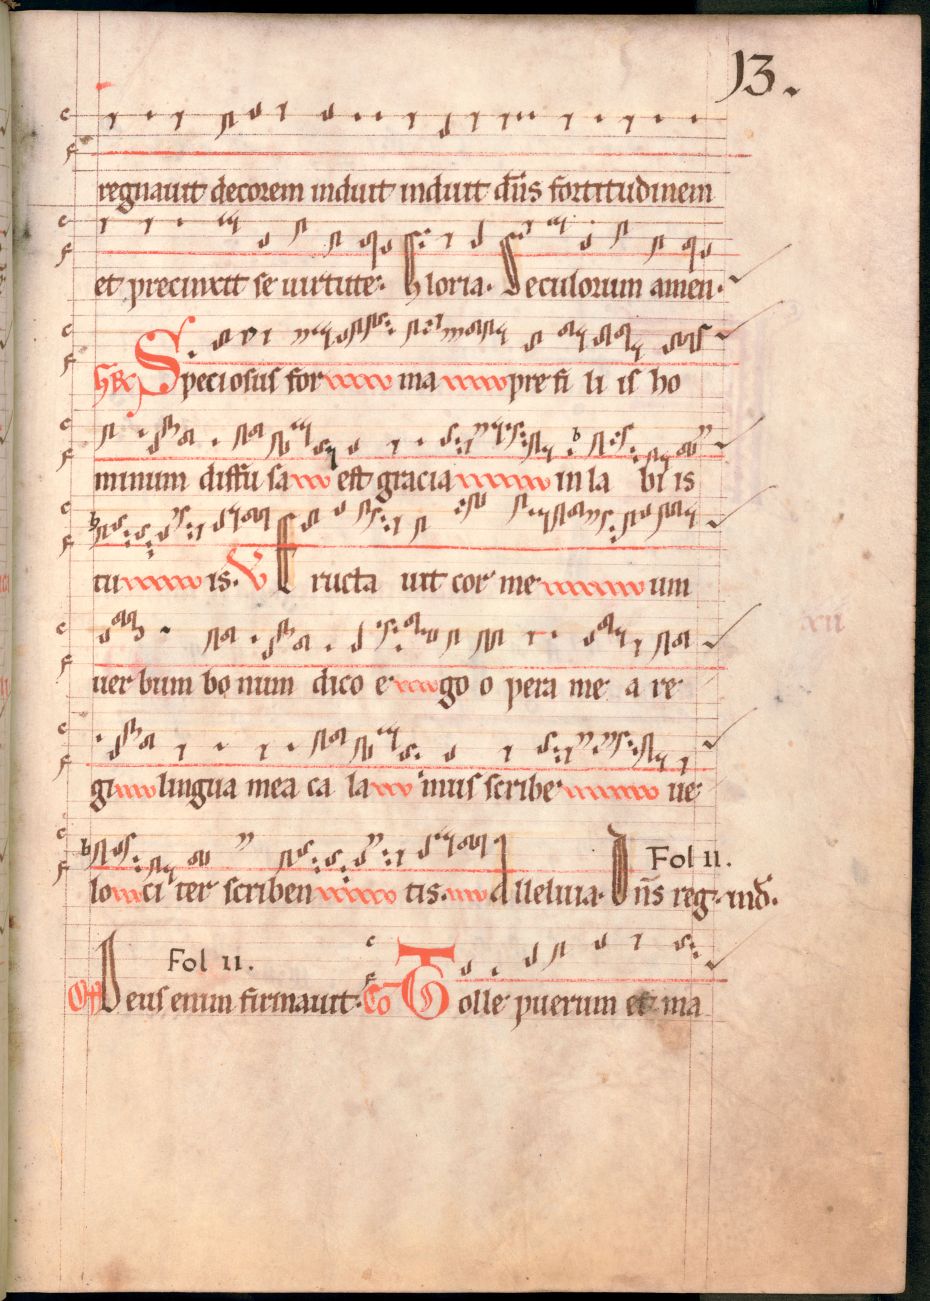 13.
regnauit decorem induit induit dñs fortitudinem
et precinxit se uirtute. Gloria. Seculorum amen.
Speciosus for ma pre fi li is ho
minum diffu sa est gracia in la bi is
tu is. V Eructa uit cor me um
uer bum bo num dico e go o pera me a re
gi lingua mea ca la mus scribe ue
lo ci ter scriben tis. Alleluia. Dñs reg. ind.
Fol 11.
Fol 11.
Off Deus enim firmauit. Co Tolle puerum et ma